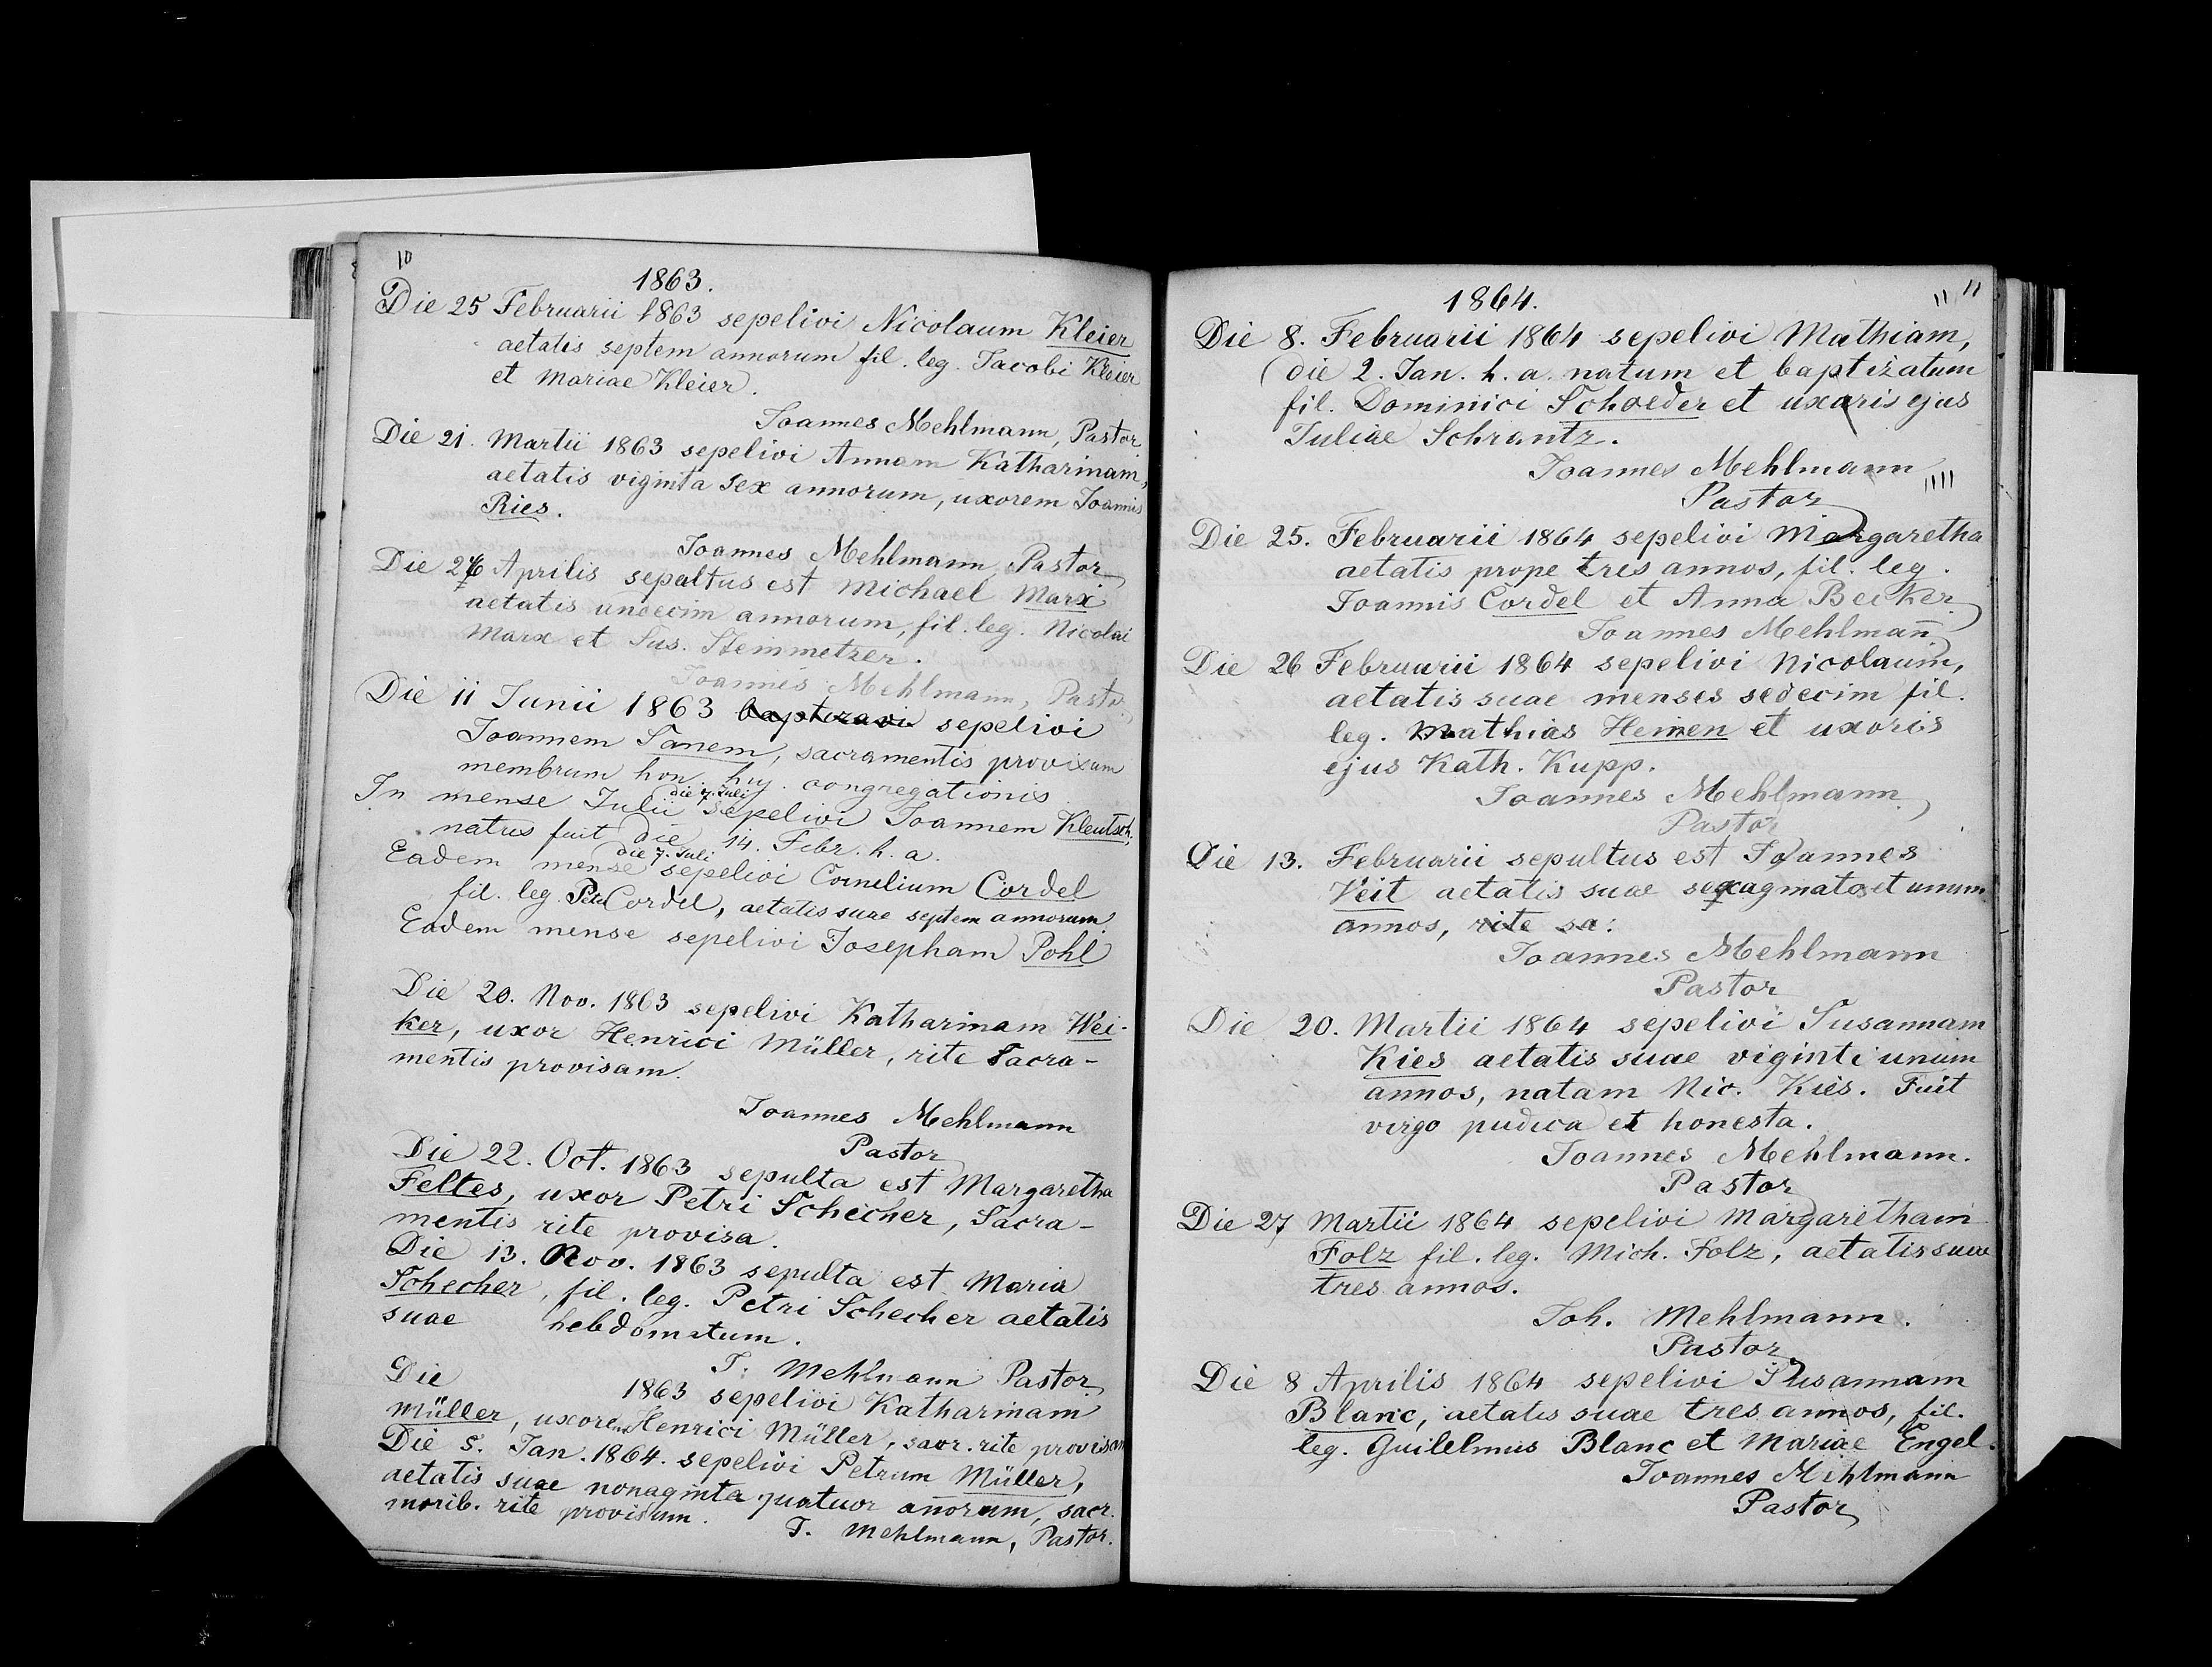 10
1863.
Die 25 Februarii 1863 sepelivi Nicolaum Kleier
aetatis septem annorum fil. leg. Jacobi Kleier
et Mariae Kleier.
Joannes Mehlmann, Pastor
Die 21. Martii 1863 sepelivi Annam Katharinam,
aetatis viginta sex annorum, uxorem Joannis
Ries.
Joannes Mehlmann, Pastor
Die Aprilis sepultus est Michael Marx
aetatis undecim annorum, fil. leg. Nicolai
Marx et Sus. Steinmetzer.
Joannes Mehlmann, Pastor
Die 11 Junii 1863 baptizavi sepelivi
Joannem Sanem, sacramentis provisum
membrum hon. huj. congregationis
In mense Julii die 7. Juli sepelivi Joannem Kleutsch,
natus fuit die 14. Febr. h. a.
Eadem mense die 7. Juli sepelivi Cornelium Cordel
fil. leg. Petri Cordel, aetatis suae septem annorum
Eadem mense sepelivi Josepham Pohl
Die 20. Nov. 1863 sepelivi Katharinam Wei-
ker, uxor Henrici Müller, rite Sacra-
mentis provisam.
Joannes Mehlmann
Pastor
Die 22. Oct. 1863 sepulta est Margaretha
Feltes, uxor Petri Schecher, Sacra-
mentis rite provisa.
Die 13. Nov. 1863 sepulta est Maria
Schecher, fil. leg. Petri Schecher aetatis
suae hebdomatum.
J. Mehlmann Pastor
Die 1863 sepelivi Katharinam
Müller, uxorem Henrici Müller, sacr. rite provisam
Die 5. Jan. 1864. sepelivi Petrum Müller,
aetatis suae nonaginta quatuor anorum, sacr.
morib. rite provisum.
J. Mehlmann, Pastor.
11 11
1864.
Die 8. Februarii 1864 sepelivi Mathiam,
(die 2. Jan. h. a. natum et baptizatum
fil. Dominici Schoeder et uxoris ejus
Juliae Schrantz.
Joannes Mehlmann
Pastor
Die 25. Februarii 1864 sepelivi Margaretha
aetatis prope tres annos, fil. leg.
Joannis Cordel et Anna Becker
Joannes Mehlman̄
Die 26 Februarii 1864 sepelivi Nicolaum,
aetatis suae menses sedecim fil.
leg. Mathias Heinen et uxoris
ejus Kath. Kupp.
Joannes Mehlmann
Pastor
Die 13. Februarii sepultus est Joannes
Veit aetatis suae et unum
annos, rite sa:
Joannes Mehlmann
Pastor
Die 20. Martii 1864 sepelivi Susannam
Kies aetatis suae viginti unum
annos, natam Nic. Kies. Fuit
virgo pudica et honesta.
Joannes Mehlmann.
Pastor
Die 27 Martii 1864 sepelivi Margaretham
Folz fil. leg. Mich. Folz, aetatis suae
tres annos.
Joh. Mehlmann.
Pastor
Die 8 Aprilis 1864 sepelivi Susannam
Blanc, aetatis suae tres annos, fil.
leg. Guilelmus Blanc et Mariae Engel.
Joannes Mehlmann
Pastor